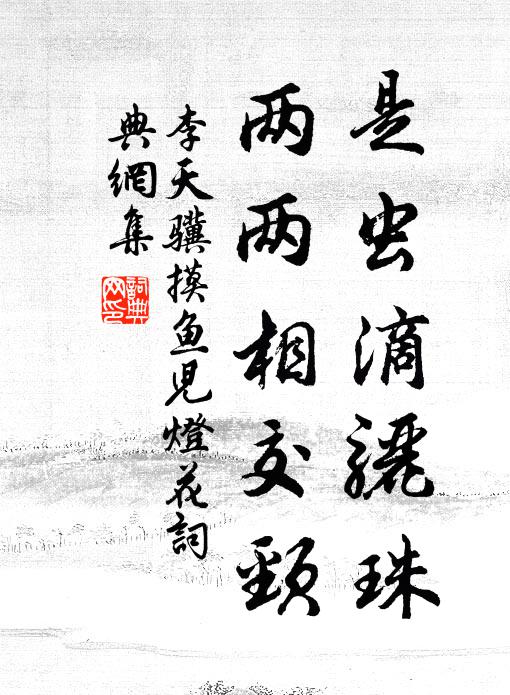 是虫滴骊珠
两两相交颈
李天骥摸鱼儿灯花词
典網集
詞典網印